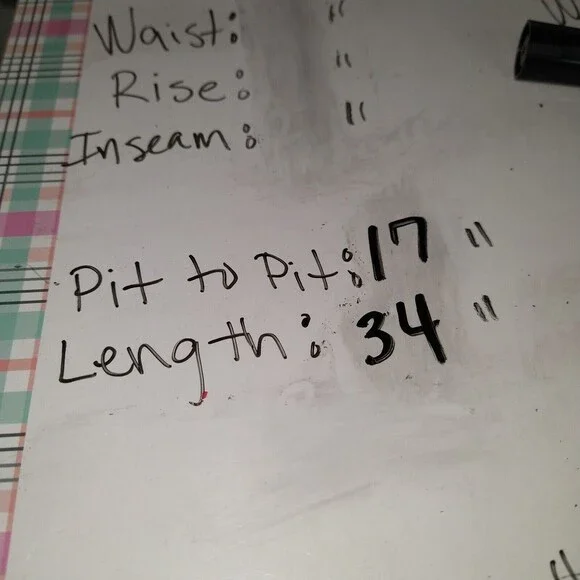 Waist: "
Rise: "
Inseam: "
Pit to Pit: 17 "
Length: 34 "